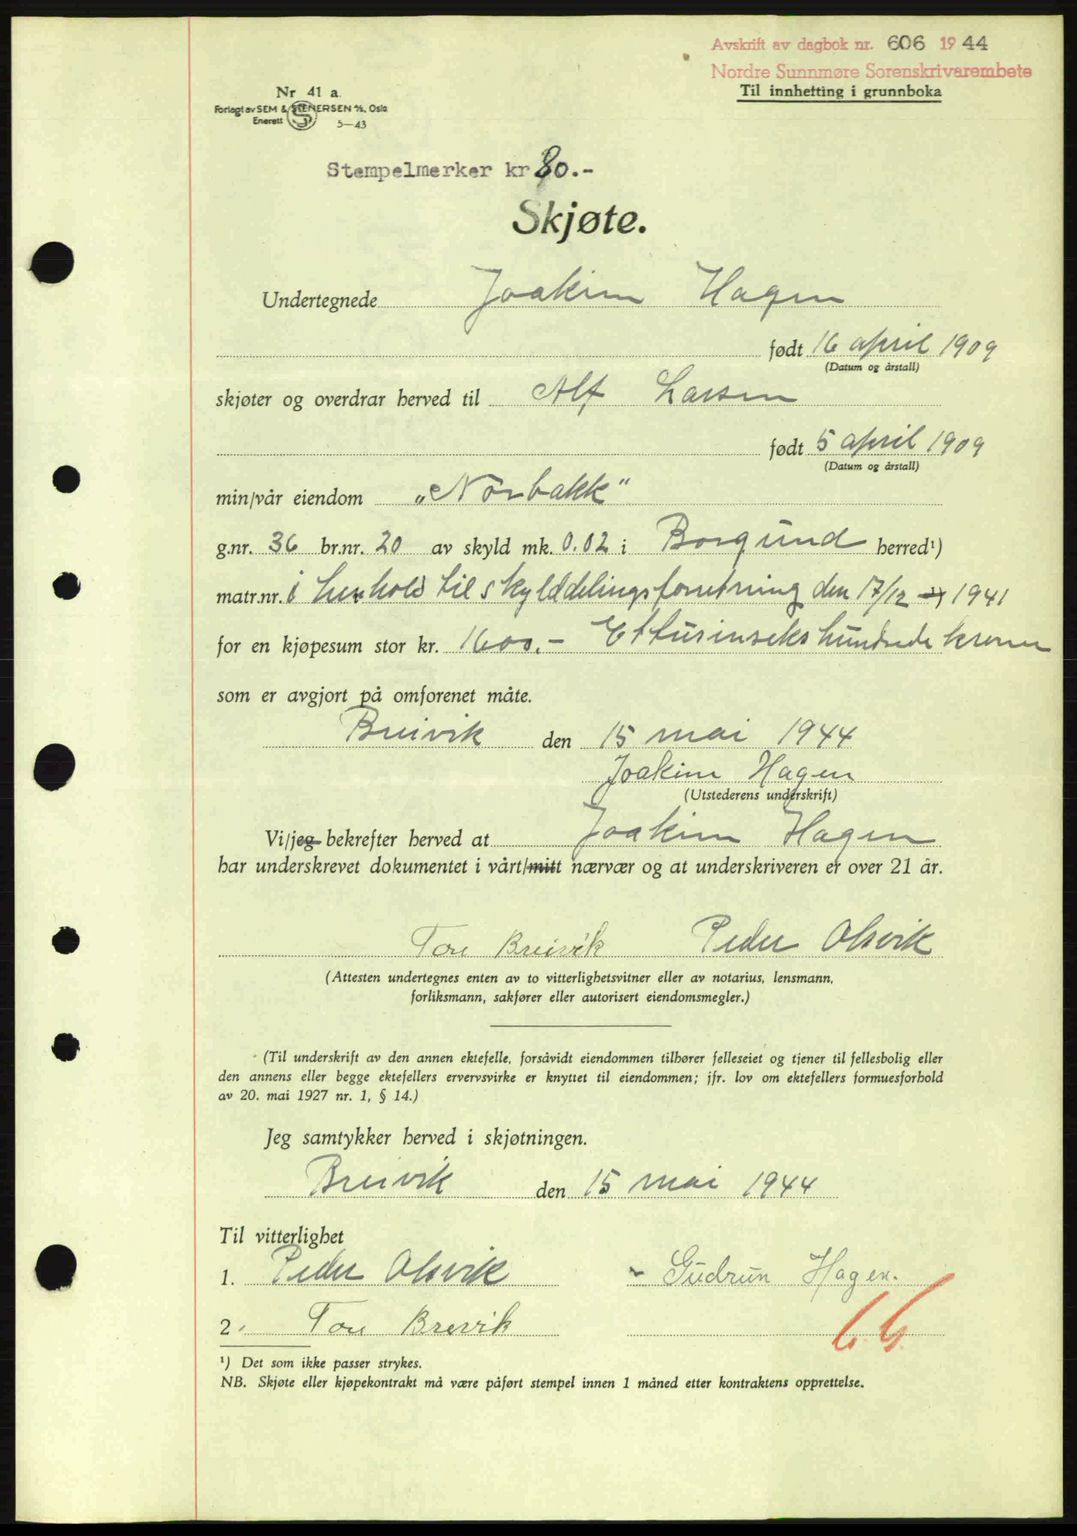 Avskrift av dagbok nr. 606 1944
Nordre Sunnmøre Sorenskrivarembete
Til innhetting i grunnboka
Nr 41 a
Forlagt av SEM & STENERSEN A/S, Oslo
Enerett S 5—43
Stempelmerker kr 80.-
Skjøte.
Undertegnede Joakim Hagen
født 16 april 1909
(Datum og årstall)
skjøter og overdrar herved til Alf Larsen
født 5 april 1909
(Datum og årstall)
min/vår eiendom „Norbakk“
g.nr. 36 br.nr. 20 av skyld mk. 0.02 i Borgund herred¹)
matr.nr. i henhold til skylddelingsforretning den 17/12 1941
for en kjøpesum stor kr. 1600.- Ettusinsekshundrede kroner
som er avgjort på omforenet måte.
Breivik den 15 mai 1944
Joakim Hagen
(Utstederens underskrift)
Vi/jeg bekrefter herved at Joakim Hagen
har underskrevet dokumentet i vårt/mitt nærvær og at underskriveren er over 21 år.
Tore Breivik Peder Olsvik
(Attesten undertegnes enten av to vitterlighetsvitner eller av notarius, lensmann,
forliksmann, sakfører eller autorisert eiendomsmegler.)
(Til underskrift av den annen ektefelle, forsåvidt eiendommen tilhører felleseiet og tjener til fellesbolig eller
den annens eller begge ektefellers ervervsvirke er knyttet til eiendommen; jfr. lov om ektefellers formuesforhold
av 20. mai 1927 nr. 1, § 14.)
Jeg samtykker herved i skjøtningen.
Breivik den 15 mai 1944
Til vitterlighet
1. Peder Olsvik - Gudrun Hagen.
2. Tore Brevik
¹) Det som ikke passer strykes.
NB. Skjøte eller kjøpekontrakt må være påført stempel innen 1 måned etter kontraktens opprettelse.